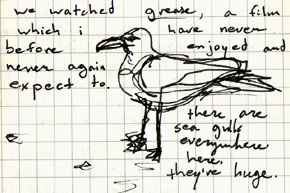 we watched grease, a film
which i have never
before enjoyed and
never again
expect to.
there are
sea gulls
everywhere
here.
they're huge.